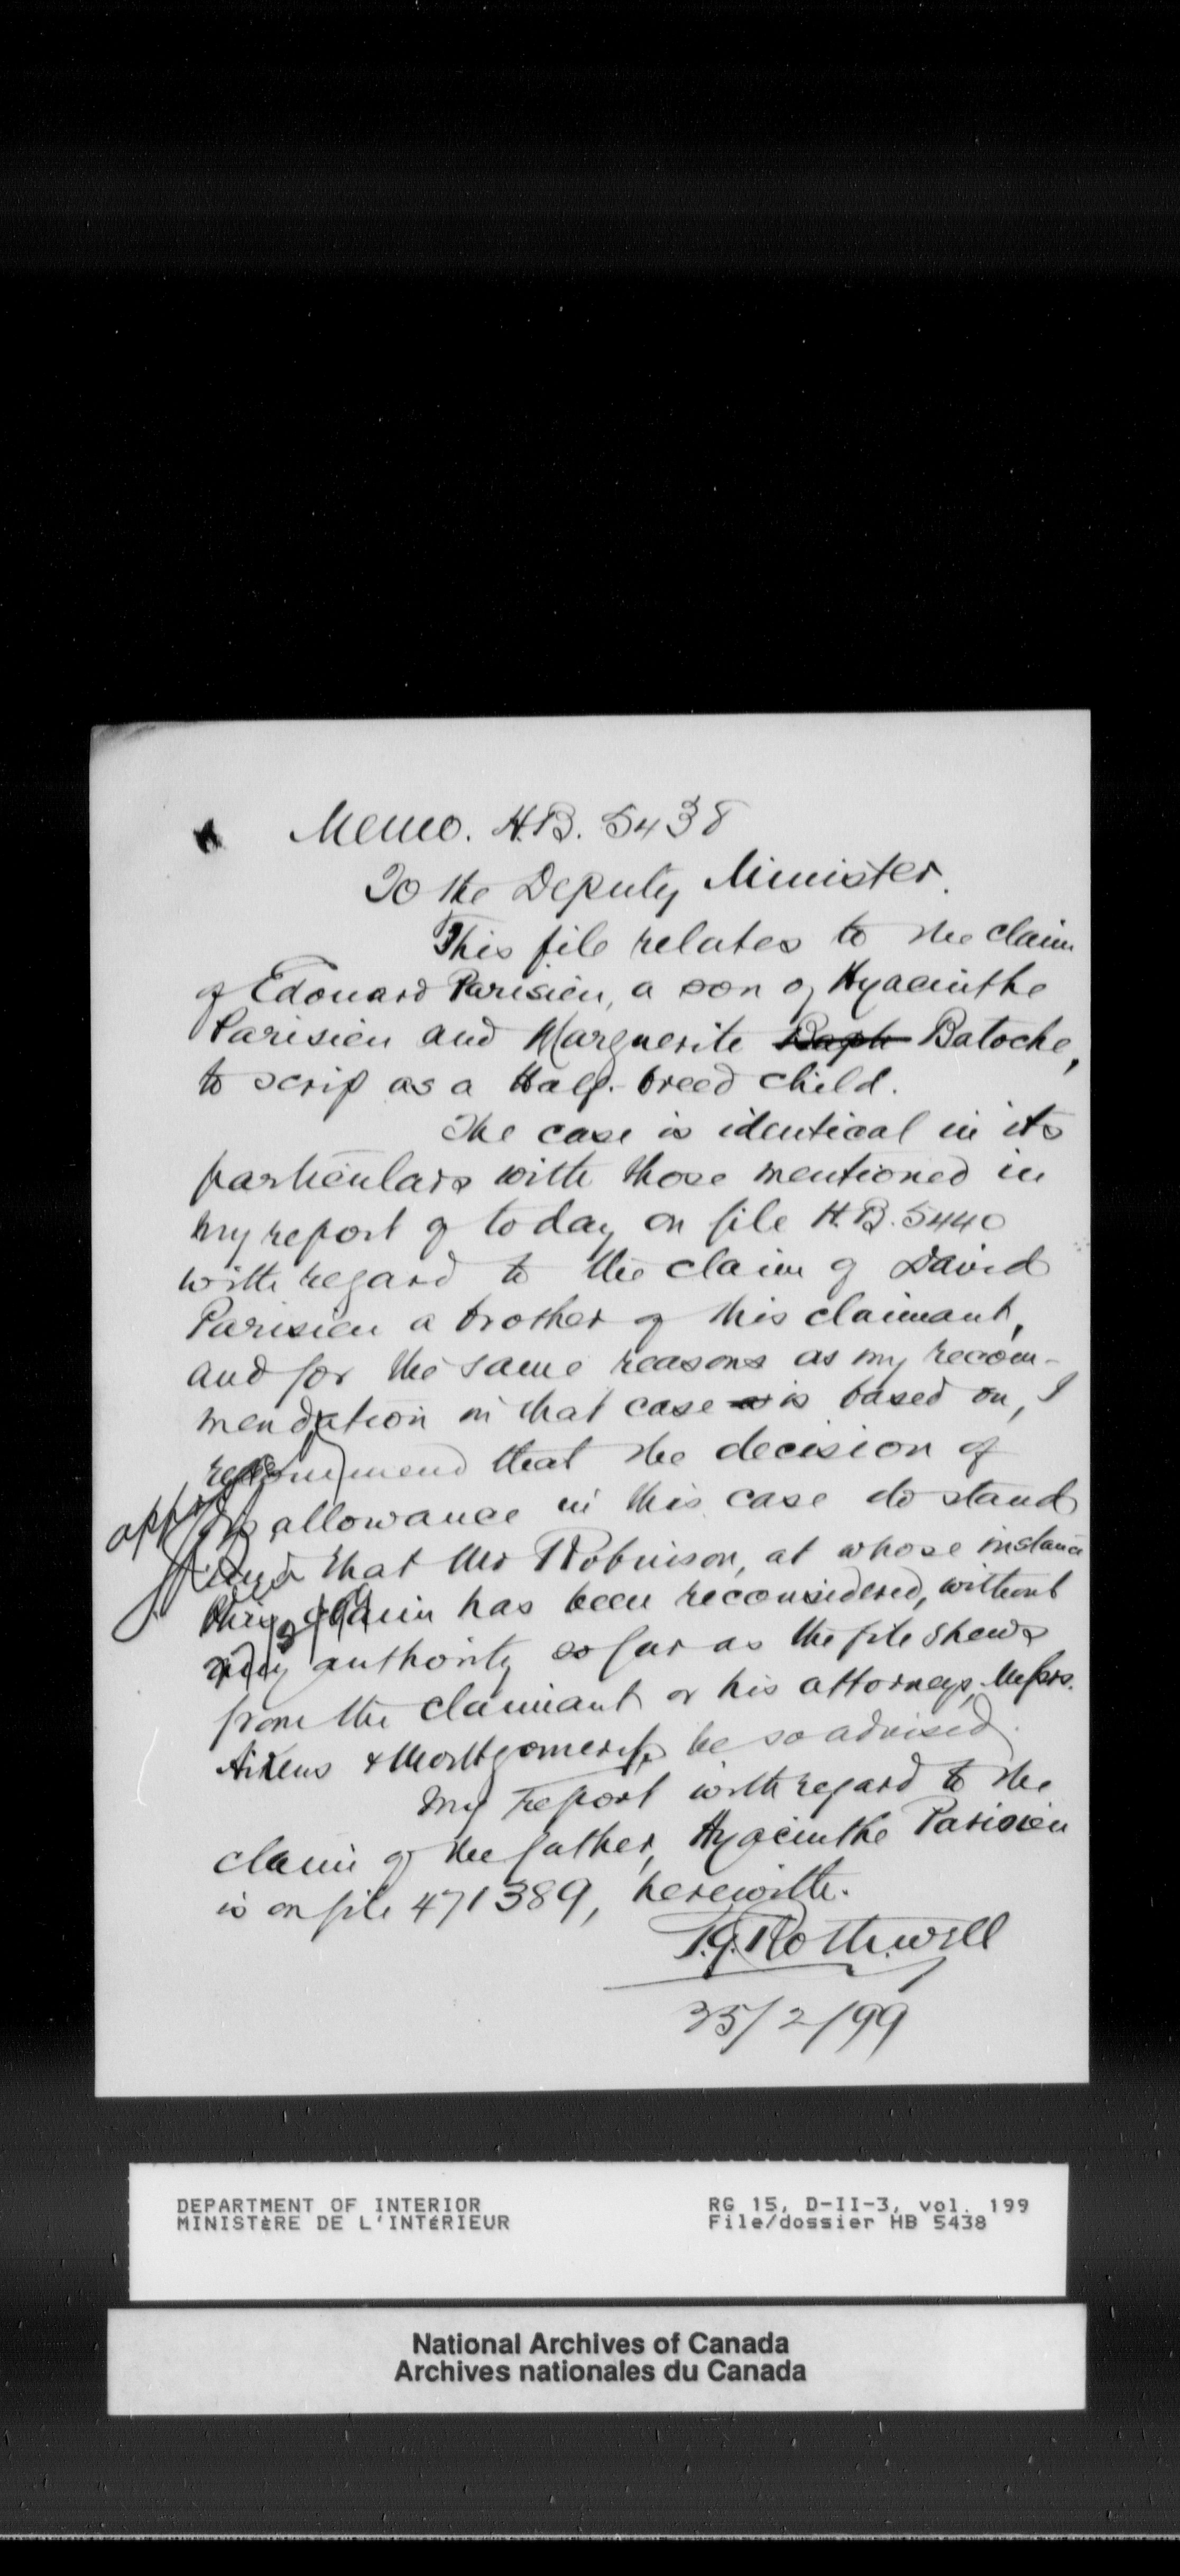 Memo. H.B. 5438
To the Deputy Minister.
This file relates to the claim
of Edouard Parisien, a son of Hyacinthe
Parisien and Marguerite Batoche,
to scrip as a Half-breed child.
The case is identical in its
particulars with those mentioned in
my report of today on file H.B. 5440
with regard to the claim of David
Parisien a brother of this claimant,
and for the same reasons as my recom-
mendation in that case is based on, I
recommend that the decision of
allowance in this case do stand
and that Mr Robinson, at whose instance
this claim has been reconsidered, without
any authority so far as the file shews
from the claimant or his attorneys, Messrs.
Aikens & Montgomery, be so advised.
My report with regard to the
claim of the father, Hyacinthe Parisien
is on file 471389, herewith.
T.G. Rothwell
25/2/99
DEPARTMENT OF INTERIOR
MINISTÈRE DE L'INTÉRIEUR
RG 15, D-II-3, vol. 199
File/dossier HB 5438
National Archives of Canada
Archives nationales du Canada